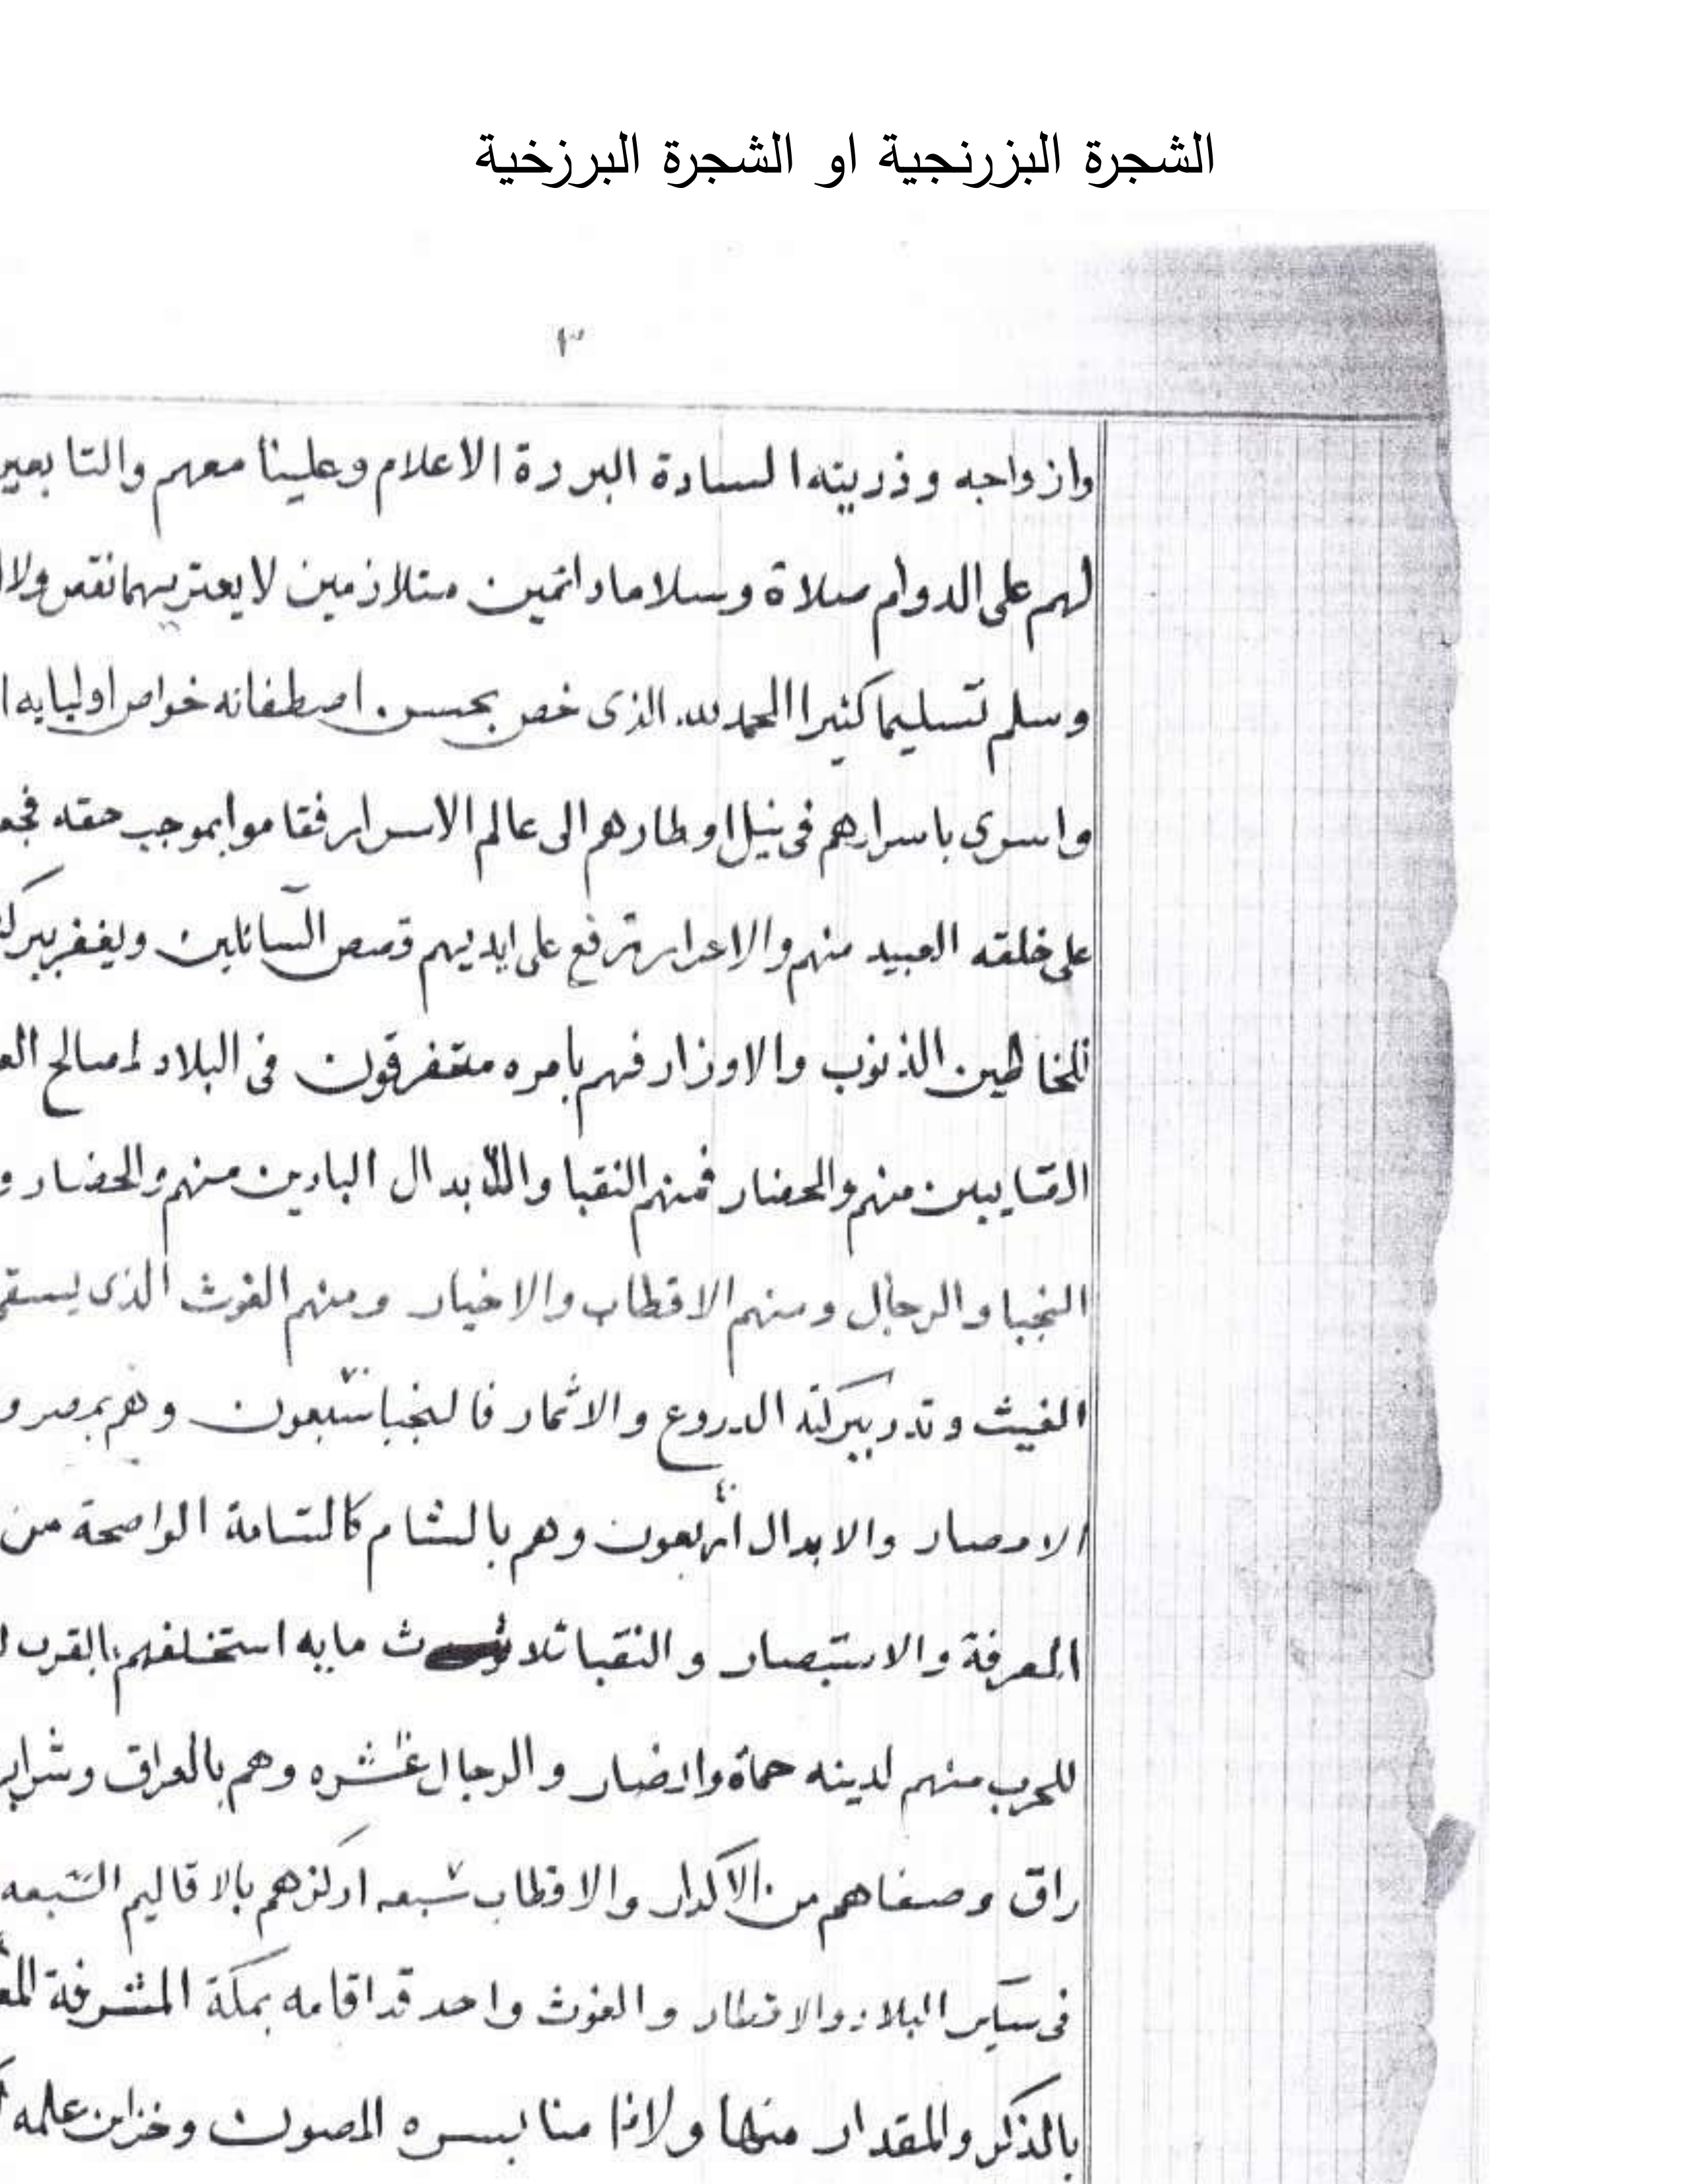 الشجرة البزرنجية او الشجرة البرزخية
٣
وازواجه وذريته السادة البررة الاعلام وعلينا معهم والتابعين
لهم على الدوام صلاة وسلاما دائمين متلازمين لا يعتريهما نقص ولا
وسلم تسليما كثيرا الحمد لله الذى خص بحسن اصطفائه خواص اوليايه
واسرى باسرارهم فى نيل اوطارهم الى عالم الاسرار فقاموا بموجب حقه
على خلقه العبيد منهم والاحرار ترفع على ايديهم قصص السائلين ويغفر
للخاطين الذنوب والاوزار فهم بامره متفرقون فى البلاد لمصالح
منهم والحضار فمنهم النقبا والابدال البادين منهم والحضار و
النجبا والرجال ومنهم الاقطاب والاخيار ومنهم الغوث الذى
الغيث وتدر ببركته الدروع والاثمار فالنجبا سبعون ٧٠ وهم بمصر و
الامصار والابدال اربعون ٤٠ وهم بالشام كالشامة الواضحة من
المعرفة والاستبصار والنقبا ثلاث مايه استخلفهم بالقرب
للحرب منهم لدينه حماة وانصار والرجال عشره وهم بالعراق
راق وصفاهم من الاكدار والاقطاب سبعه ٧ اركزهم بالاقاليم السبعه
فى ساير البلاد والاقطار والغوث واحد قد اقامه بمكة المشرفة
بالذكر والمقدار المصون وخزاين علمه